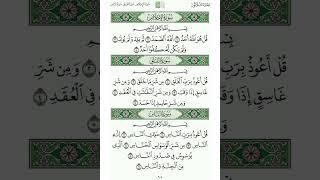 سُورَةُ الإِخْلَاصِ
بِسْمِ اللَّهِ الرَّحْمَٰنِ الرَّحِيمِ
قُلْ هُوَ اللَّهُ أَحَدٌ ۝ اللَّهُ الصَّمَدُ ۝ لَمْ يَلِدْ وَلَمْ يُولَدْ ۝
وَلَمْ يَكُن لَّهُ كُفُوًا أَحَدٌ ۝
سُورَةُ الفَلَقِ
بِسْمِ اللَّهِ الرَّحْمَٰنِ الرَّحِيمِ
قُلْ أَعُوذُ بِرَبِّ الْفَلَقِ ۝ مِن شَرِّ مَا خَلَقَ ۝ وَمِن شَرِّ
غَاسِقٍ إِذَا وَقَبَ ۝ وَمِن شَرِّ النَّفَّاثَاتِ فِي الْعُقَدِ ۝
وَمِن شَرِّ حَاسِدٍ إِذَا حَسَدَ ۝
سُورَةُ النَّاسِ
بِسْمِ اللَّهِ الرَّحْمَٰنِ الرَّحِيمِ
قُلْ أَعُوذُ بِرَبِّ النَّاسِ ۝ مَلِكِ النَّاسِ ۝
إِلَٰهِ النَّاسِ ۝ مِن شَرِّ الْوَسْوَاسِ الْخَنَّاسِ ۝ الَّذِي
يُوَسْوِسُ فِي صُدُورِ النَّاسِ ۝
مِنَ الْجِنَّةِ وَالنَّاسِ ۝